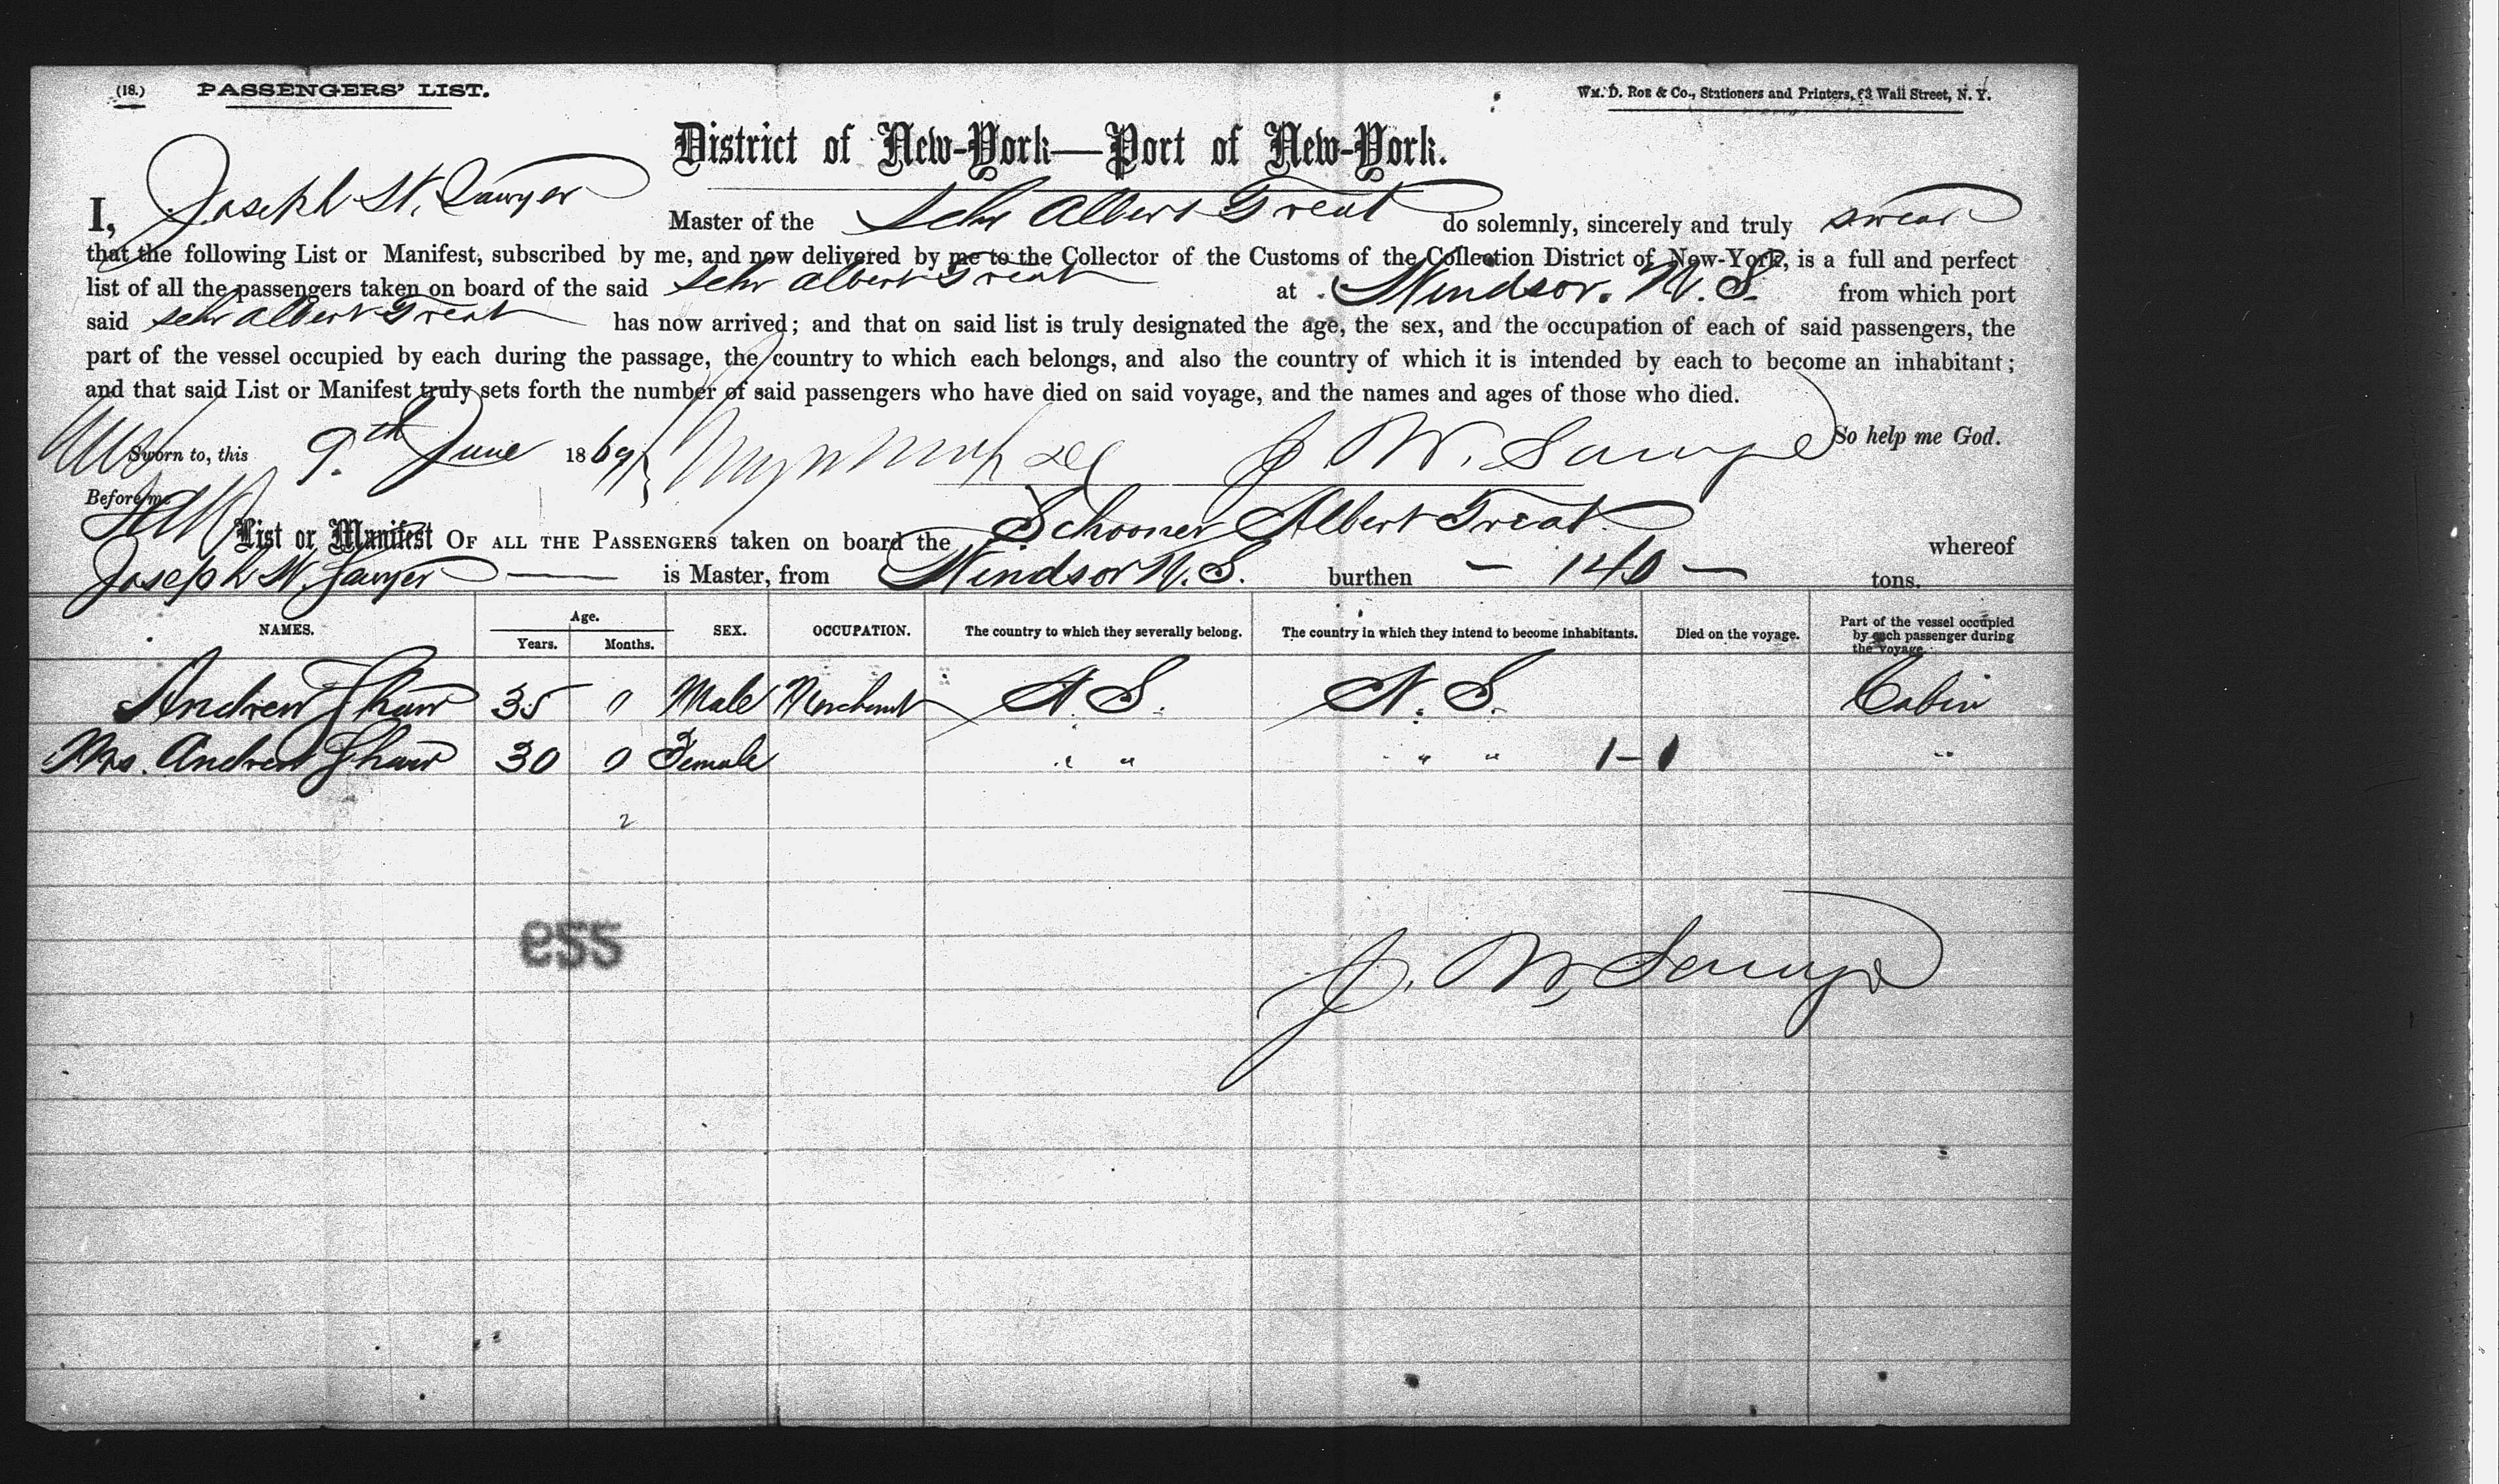 (18.) PASSENGERS' LIST.
Wm. D. Roe & Co., Stationers and Printers, 63 Wall Street, N. Y.
District of New-York—Port of New-York.
I, Joseph W. Sawyer Master of the Schr Albert Treat do solemnly, sincerely and truly swear
that the following List or Manifest, subscribed by me, and now delivered by me to the Collector of the Customs of the Collection District of New-York, is a full and perfect
list of all the passengers taken on board of the said Schr Albert Treat at Windsor. N. S. from which port
said Schr Albert Treat has now arrived; and that on said list is truly designated the age, the sex, and the occupation of each of said passengers, the
part of the vessel occupied by each during the passage, the country to which each belongs, and also the country of which it is intended by each to become an inhabitant;
and that said List or Manifest truly sets forth the number of said passengers who have died on said voyage, and the names and ages of those who died.
So help me God.
Sworn to, this 9th June 1869 J. W. Sawyer
Before me
List or Manifest OF ALL THE PASSENGERS taken on board the Schooner Albert Treat whereof
Joseph W. Sawyer — is Master, from Windsor N. S. burthen — 140 — tons.
NAMES. Age. Years. Months. SEX. OCCUPATION. The country to which they severally belong. The country in which they intend to become inhabitants. Died on the voyage. Part of the vessel occupied by each passenger during the voyage.
Andrew Shaw 35 0 Male Merchant N. S. N. S. Cabin
Mrs. Andrew Shaw 30 0 Female " " " " 1-1 "
2
955
J. W. Sawyer